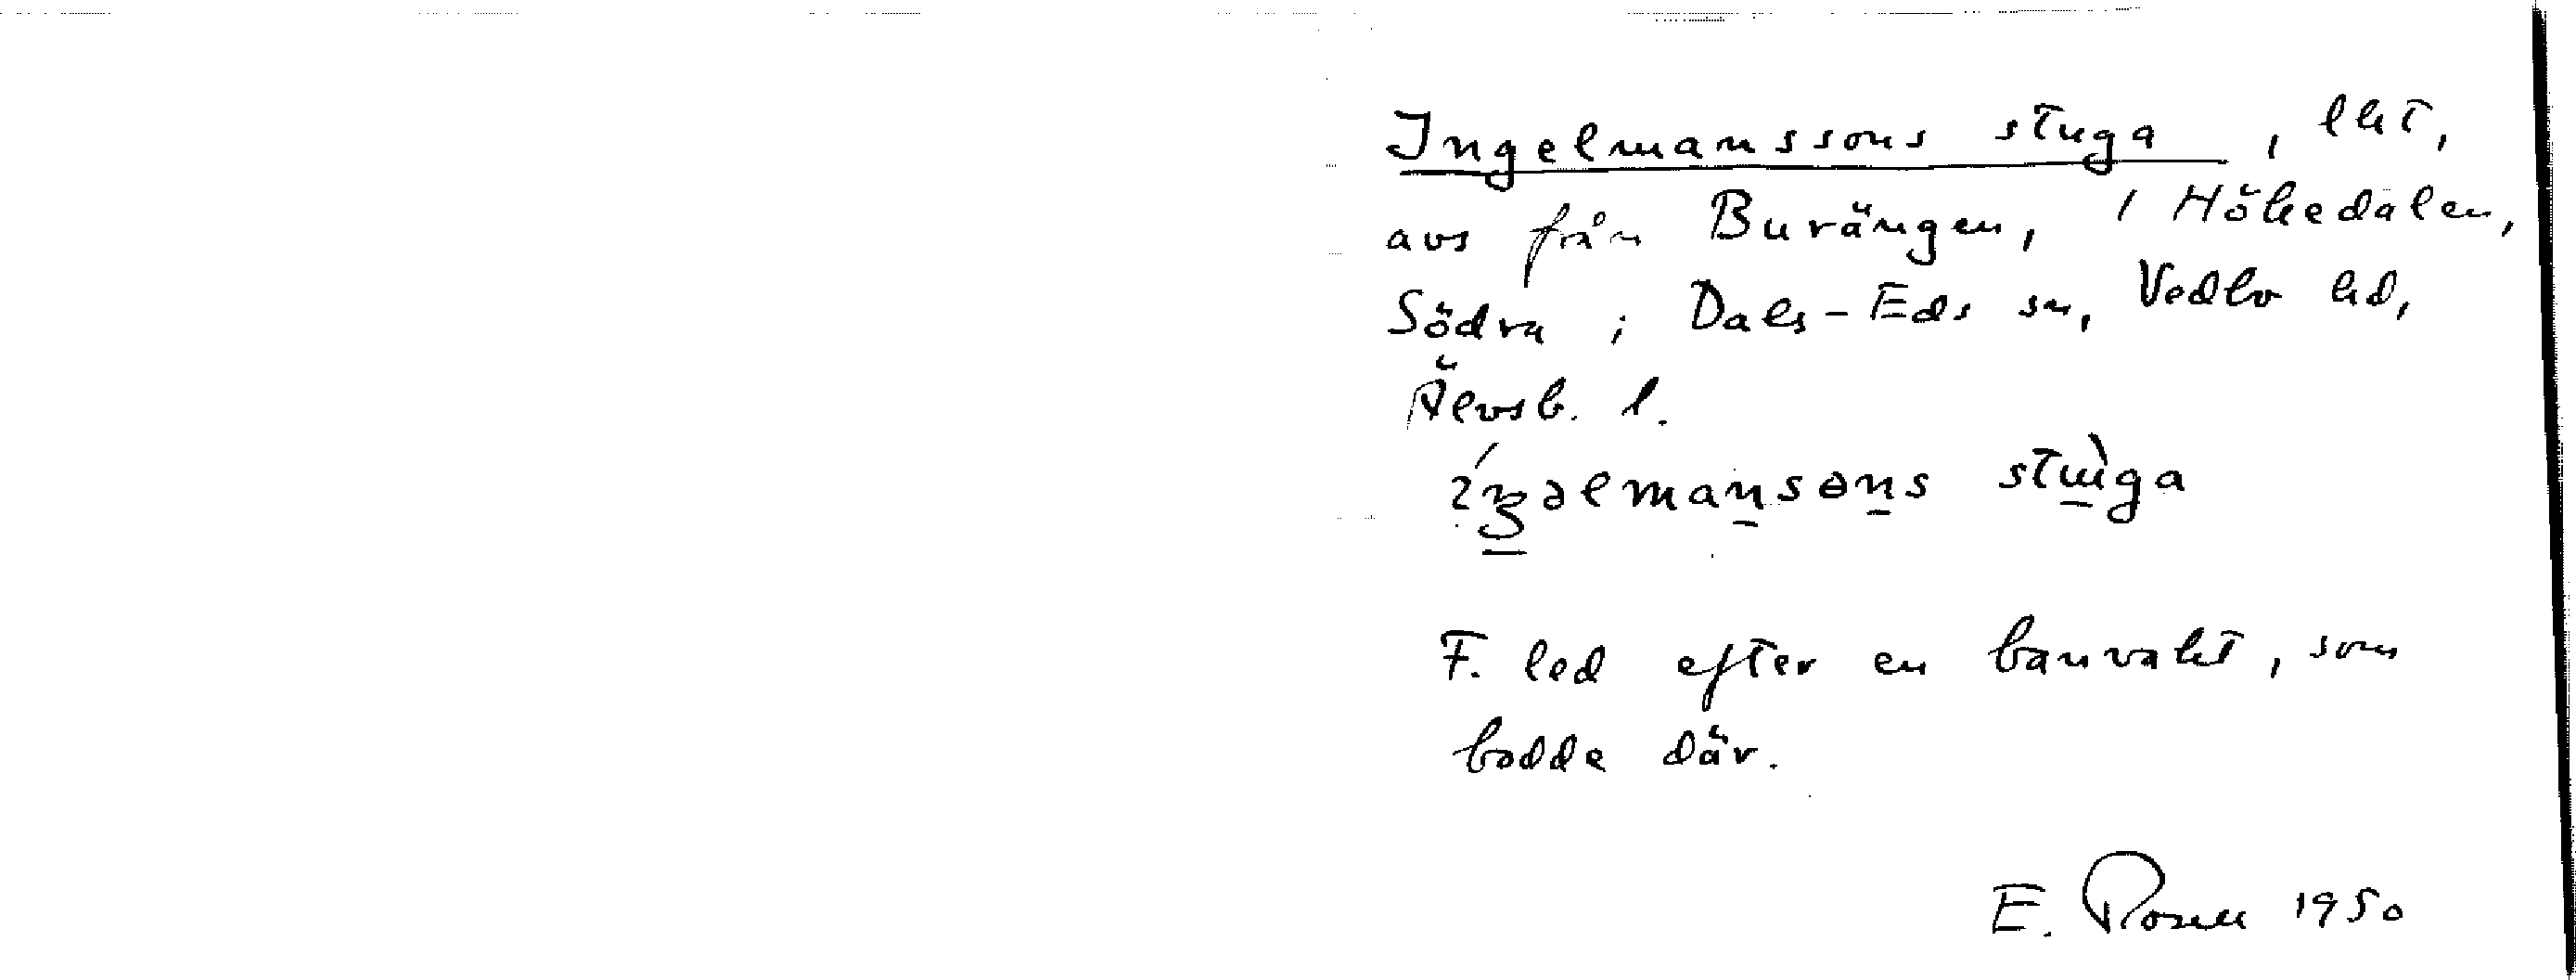 Ingelmanssons stuga, lht,
avs från Burängen, 1 Hökedalen,
Södra i Dals-Eds sn, Vedbo hd,
Älvsb. l.
íŋəlmansɵns stɯ̀ga
F. led efter en banvakt, som
bodde där.
E. Rosell 1950